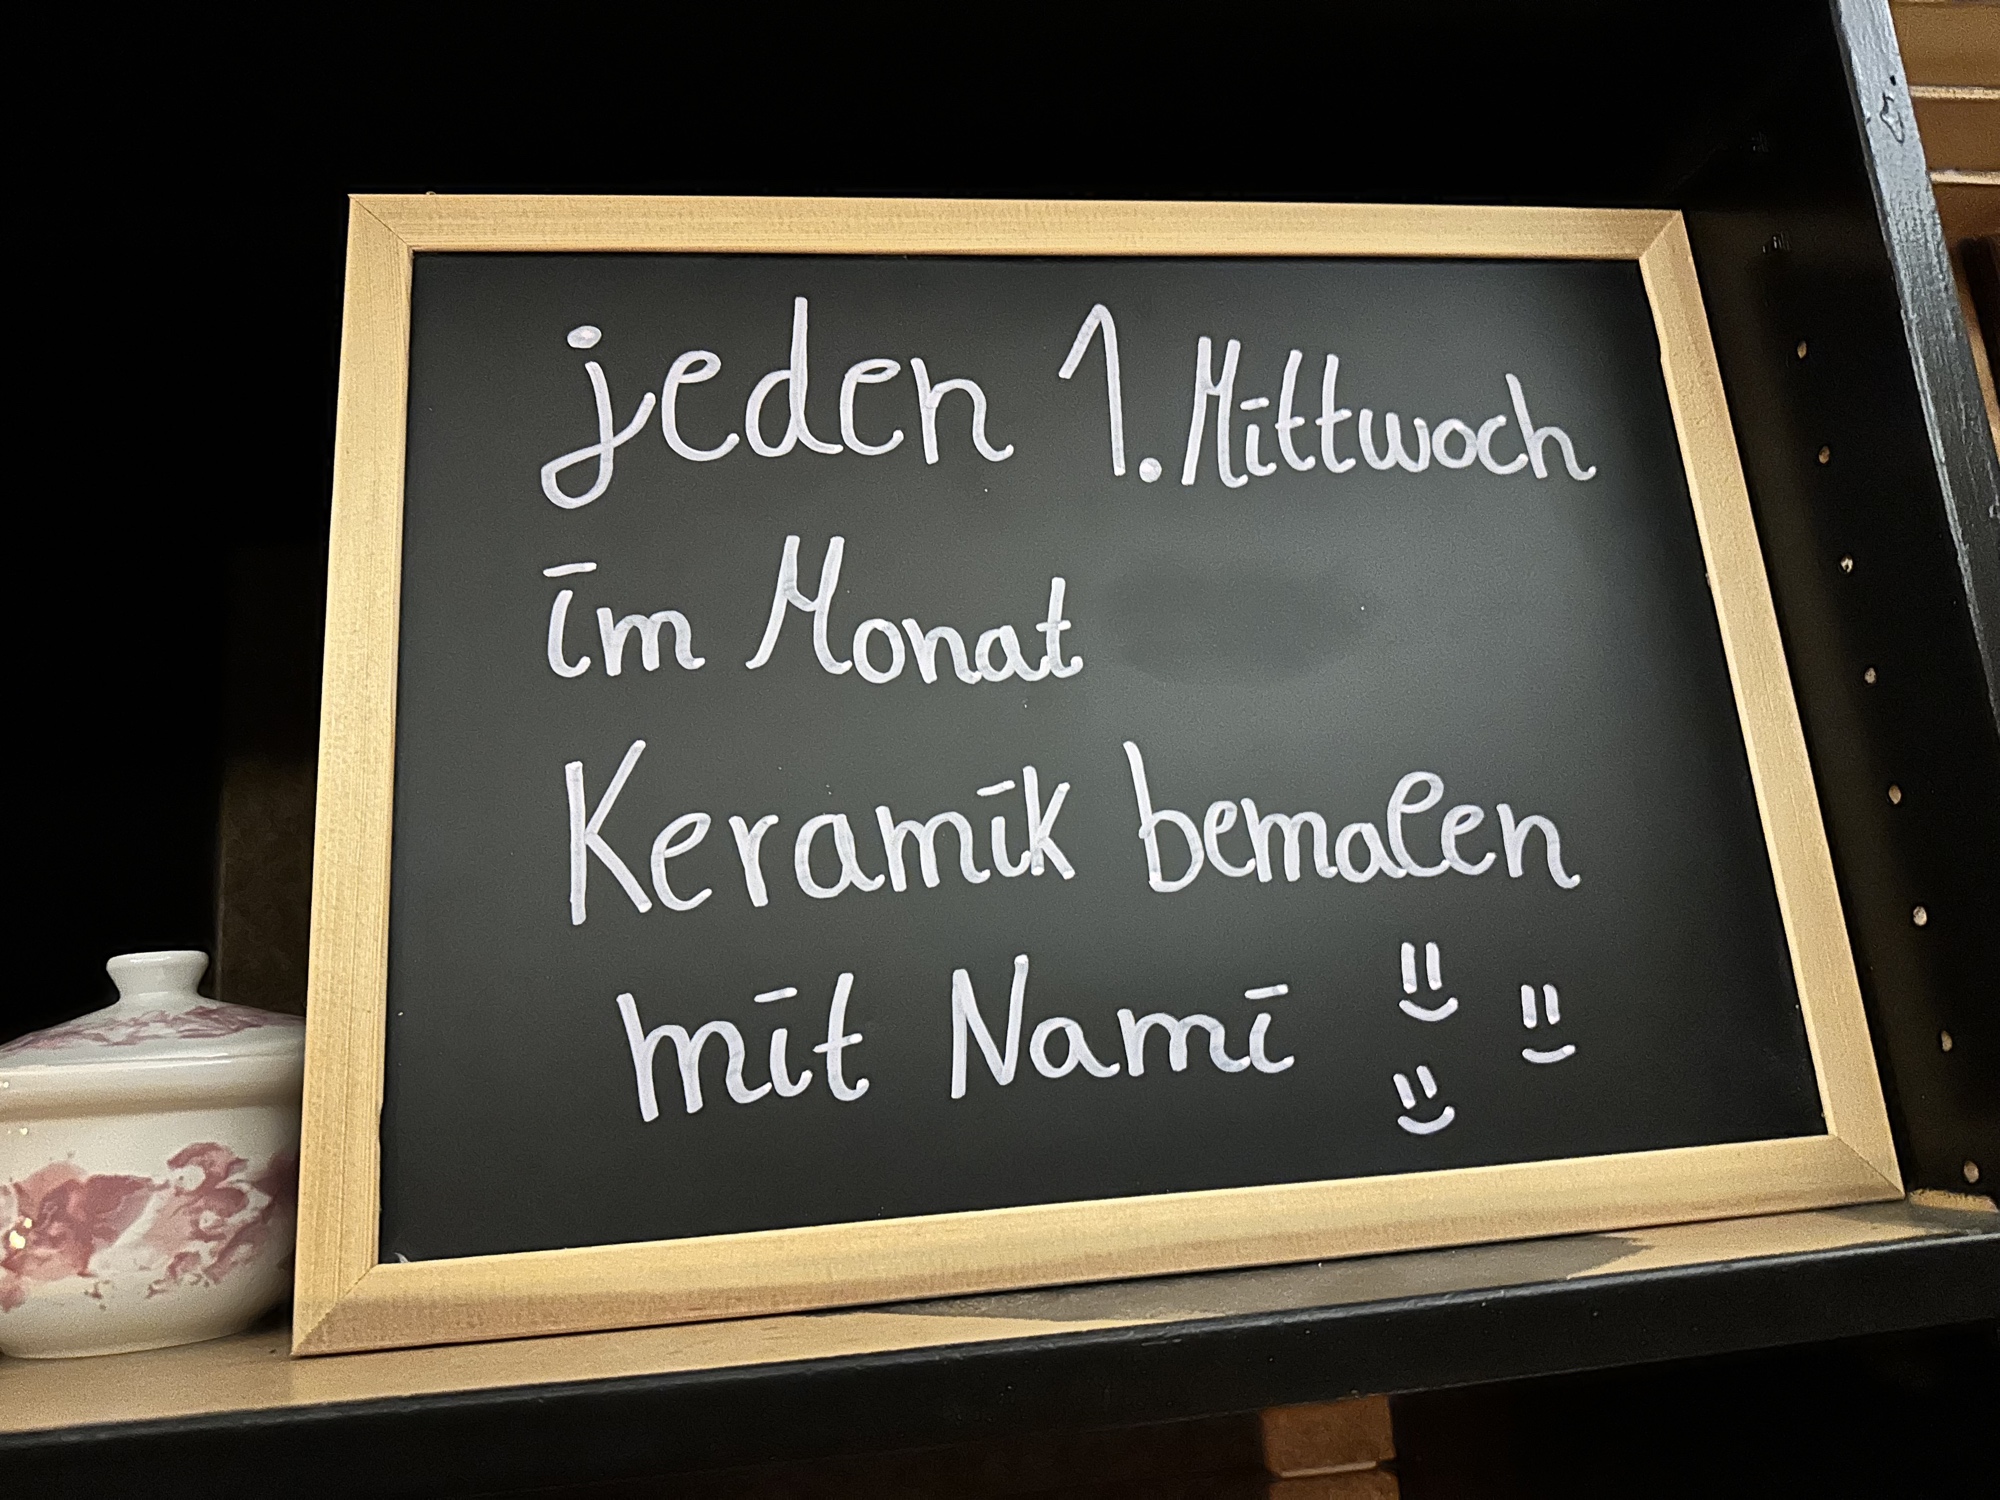 jeden 1. Mittwoch
im Monat
Keramik bemalen
mit Nami